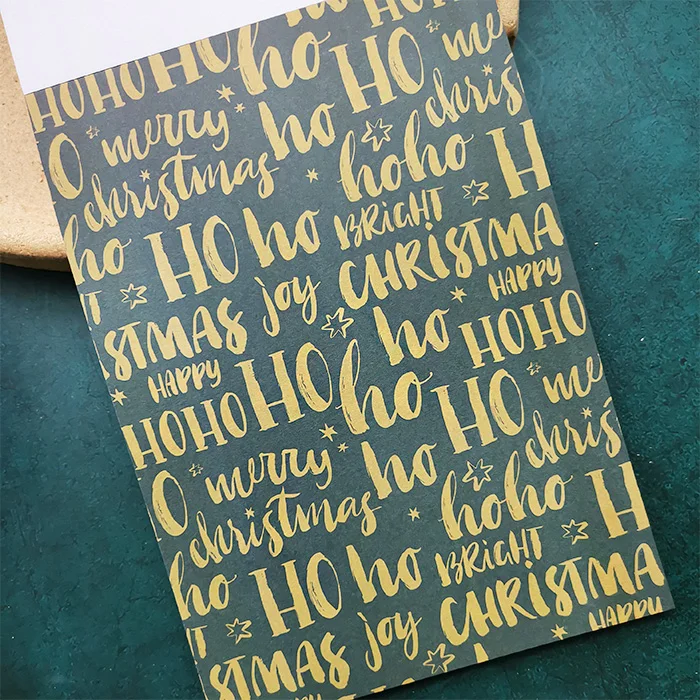 HOHO HO ho HO me
O merry ho chris
christmas hoho H
ho HO ho BRIGHT CHRISTMA
T joy HAPPY
STMAS ho HOHO
HAPPY HO ho HO me
HOHO merry ho chris
O christmas hoho H
ho HO ho BRIGHT CHRISTMA
T joy HAPPY
STMAS